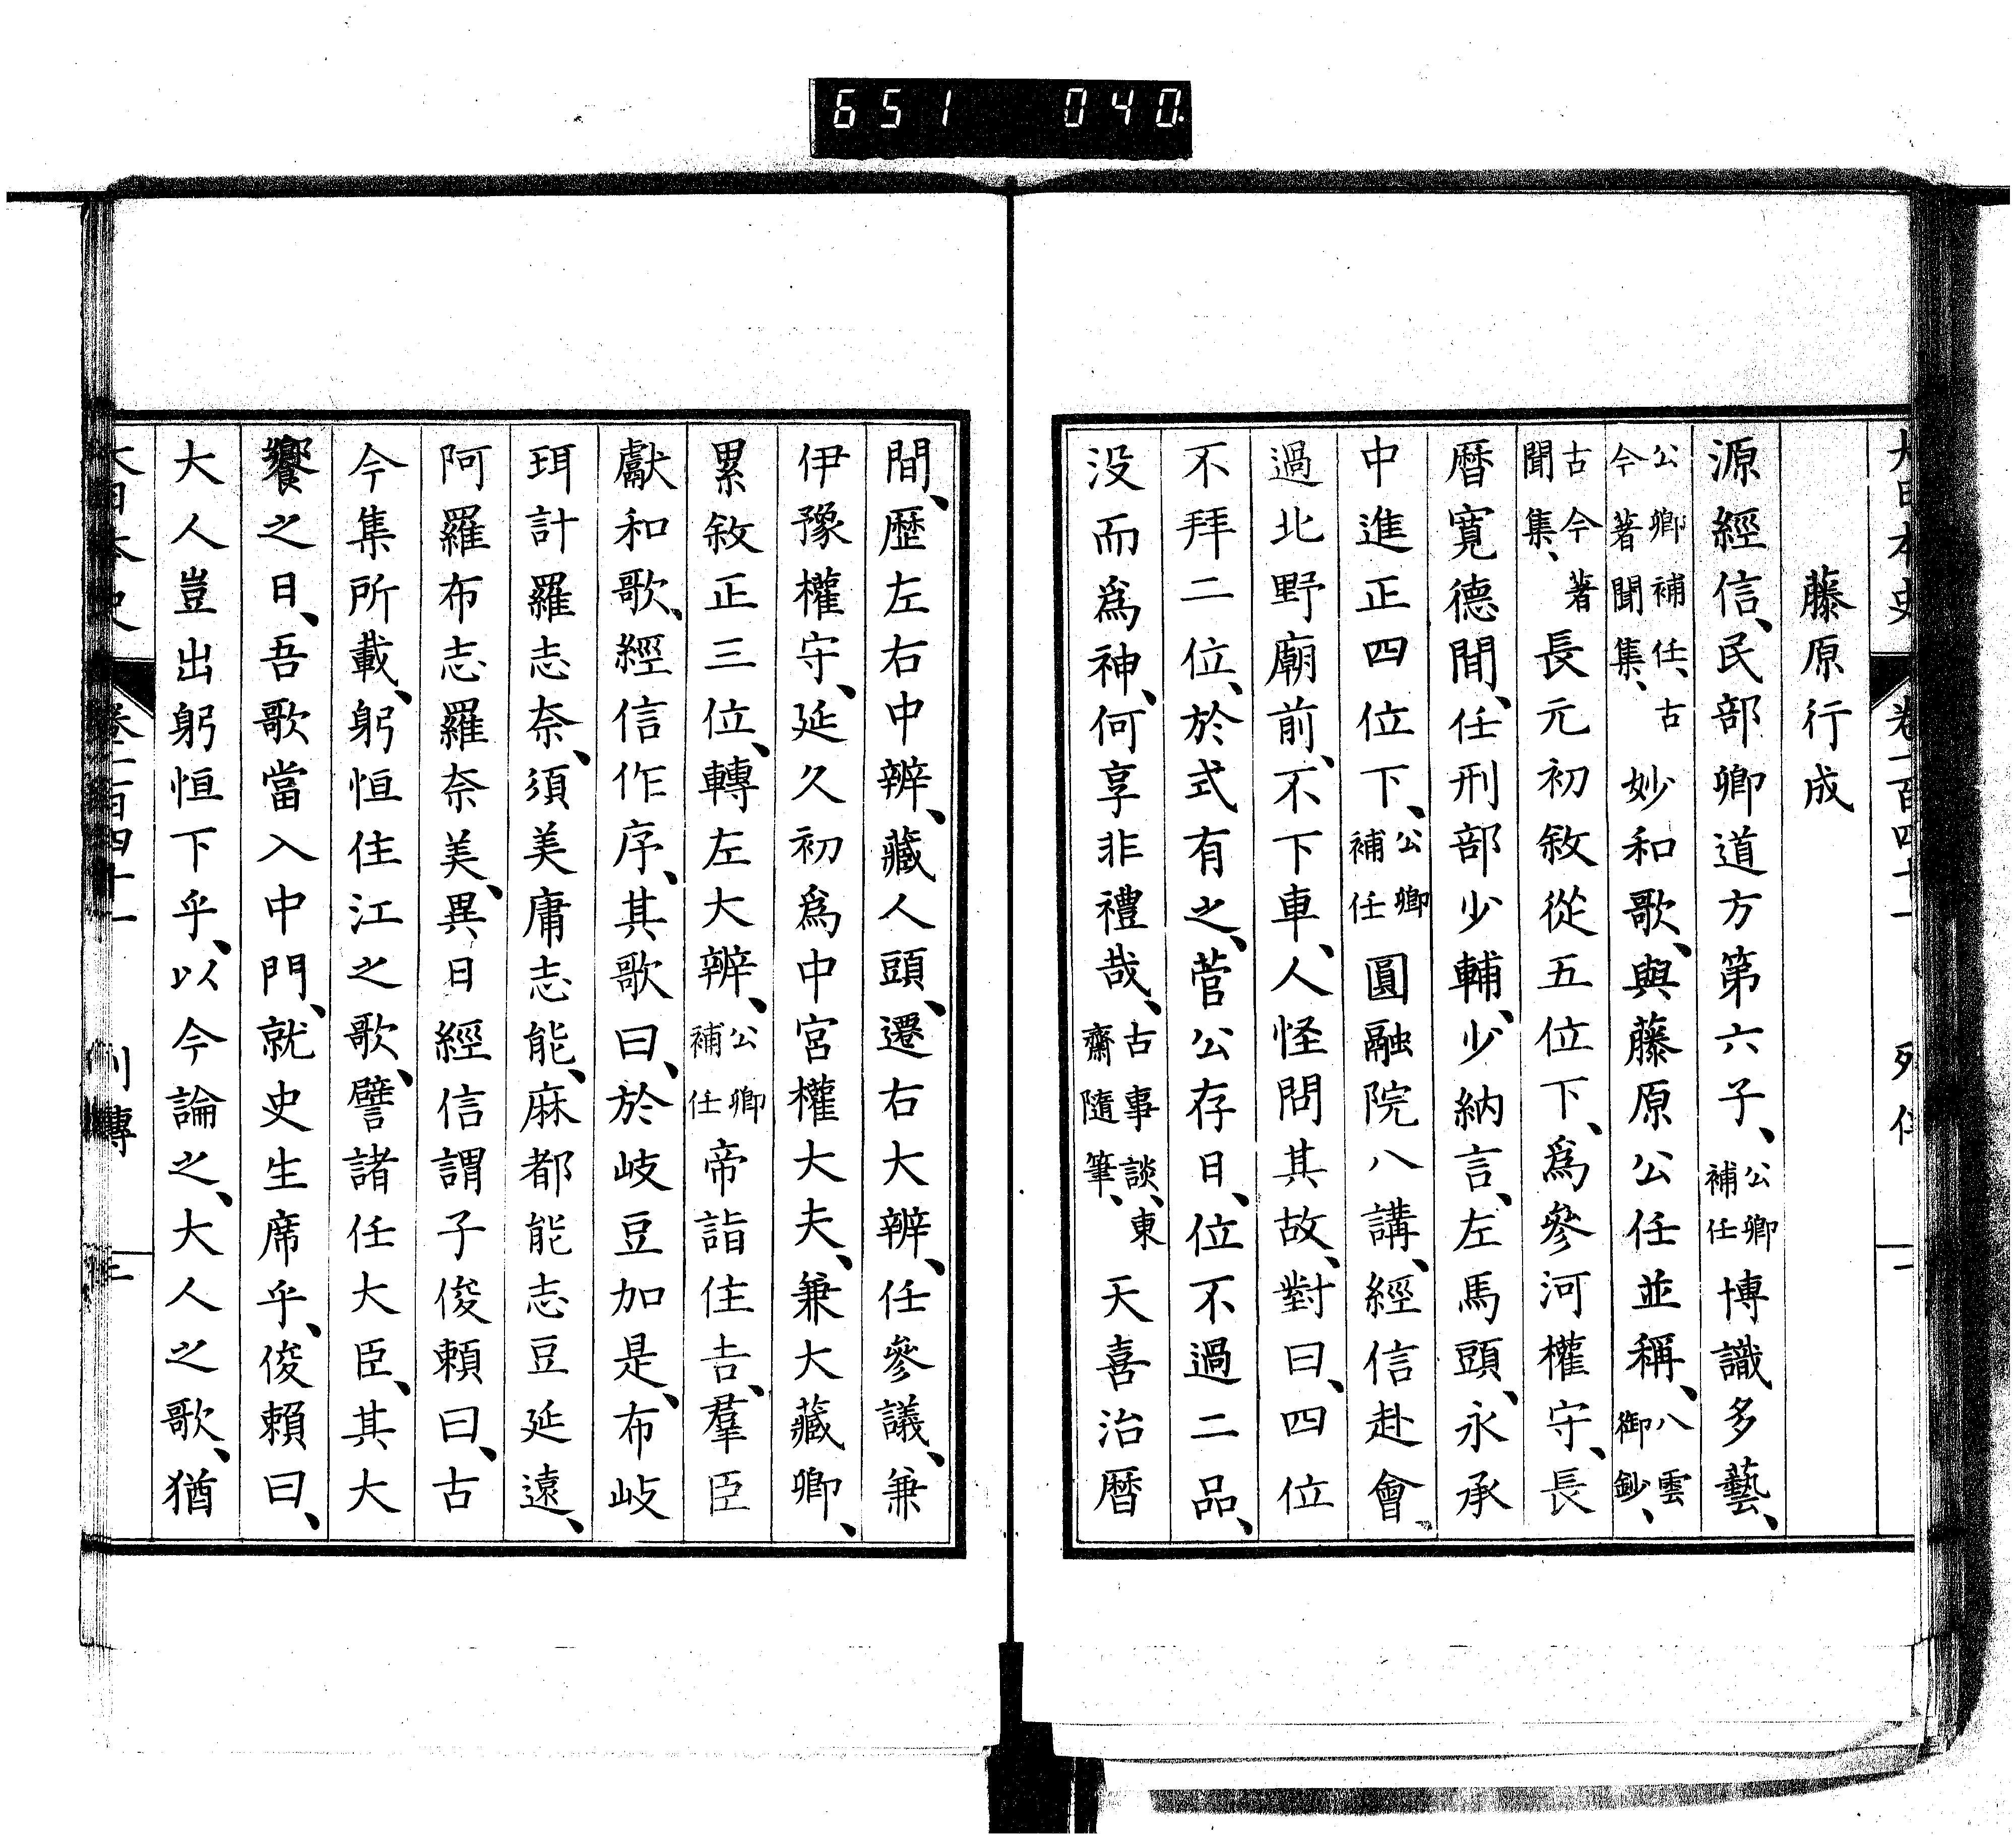 651 040
大日本史 卷二百四十一 列傳
藤原行成
源經信、民部卿道方第六子、公卿補任博識多藝、
公卿補任、古今著聞集、妙和歌、與藤原公任並稱、八雲御鈔、
古今著聞集、長元初敘從五位下、爲參河權守、長
曆寬德間、任刑部少輔、少納言、左馬頭、永承
中進正四位下、公卿補任圓融院八講、經信赴會、
過北野廟前、不下車、人怪問其故、對曰、四位
不拜二位、於式有之、菅公存日、位不過二品、
没而爲神、何享非禮哉、古事談、東齋隨筆、天喜治曆
間、歷左右中辨、藏人頭、遷右大辨、任參議、兼
伊豫權守、延久初爲中宮權大夫、兼大藏卿、
累敘正三位、轉左大辨、公卿補任帝詣住吉、羣臣
獻和歌、經信作序、其歌曰、於岐豆加是、布岐
珥計羅志奈、須美庸志能、麻都能志豆延遠、
阿羅布志羅奈美、異日經信謂子俊賴曰、古
今集所載、躬恒住江之歌、譬諸任大臣、其大
饗之日、吾歌當入中門、就史生席乎、俊賴曰、
大人豈出躬恒下乎、以今論之、大人之歌、猶
大日本史 卷二百四十一 列傳 三